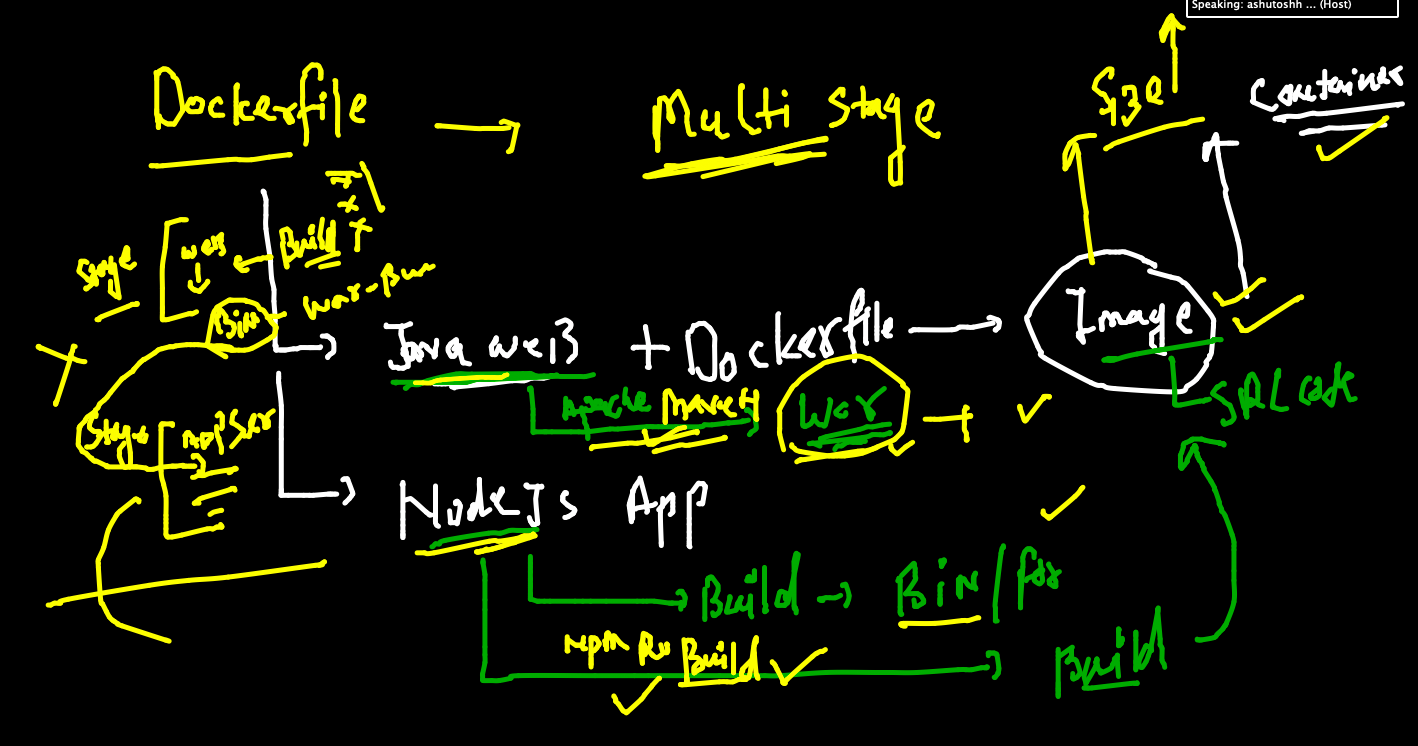 Speaking: ashutoshh ... (Host)
Dockerfile → Multi Stage
Size
Container
Stage
Build
war-
Bin
Java web + Dockerfile → Image
Apache Maven War +
SRC code
Stage
App Ser
NodeJs App
Build → BIN/
npm Ru Build
Build